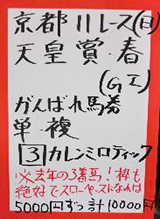 京都11レース(日)
天皇賞・春
(GⅠ)
がんばれ馬券
単・複
[3]カレンミロティック
※去年の3着馬!枠も
絶好でスローペースなれば
5000円ずつ計10000円